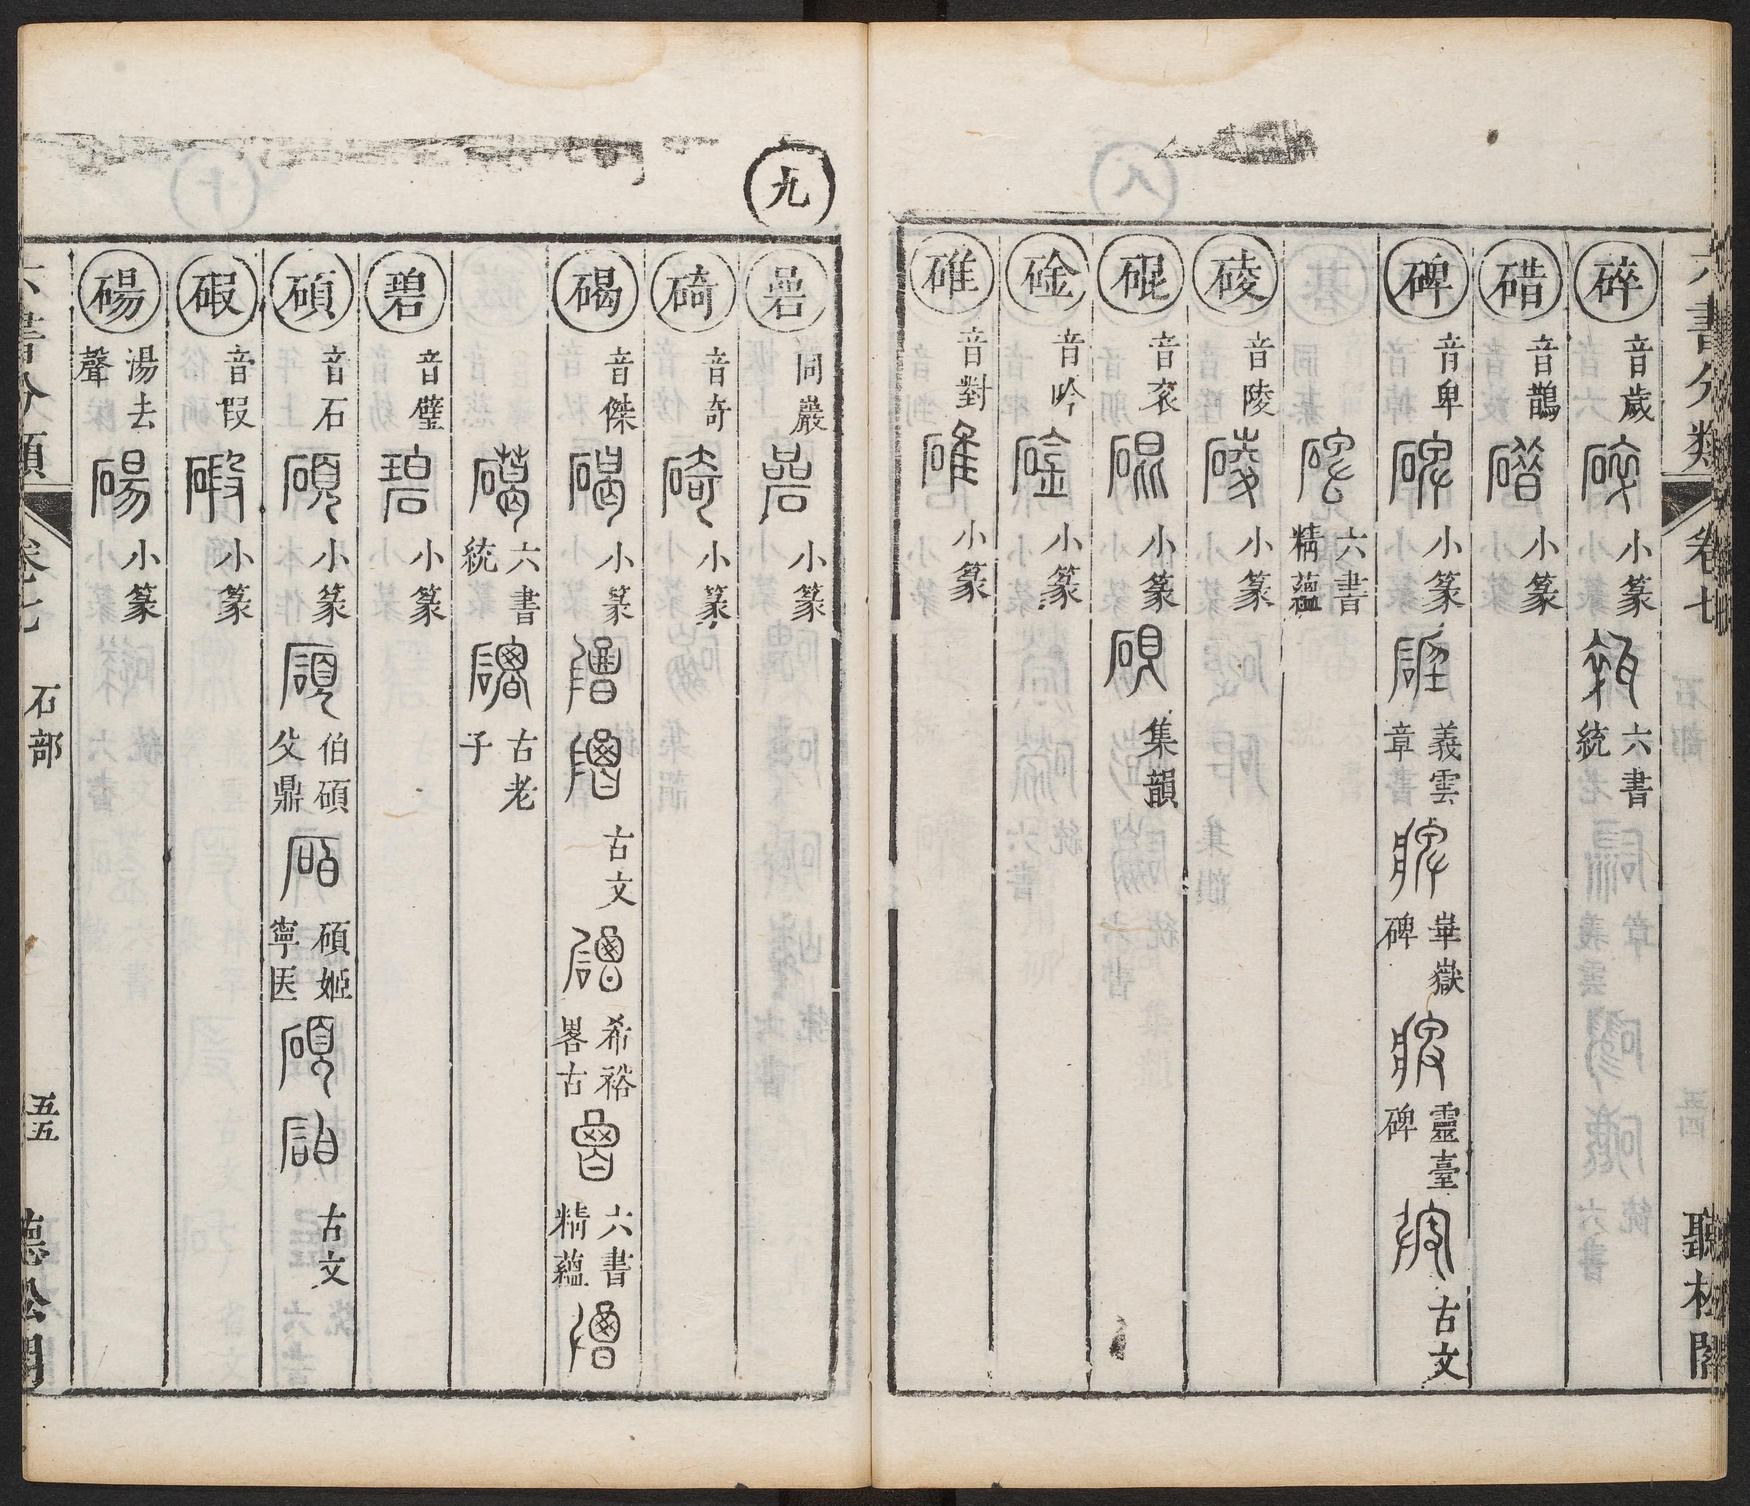 六書分類 卷七 石部 聽松閣
碎 音歲 小篆 六書統
碏 音鵲 小篆
碑 音卑 小篆 義雲章 華嶽碑 靈臺碑 古文
六書精蘊
碐 音陵 小篆
硍 音衮 小篆 集韻
碒 音吟 小篆
碓 音對 小篆
九
碞 同巖 小篆
碕 音奇 小篆
碣 音傑 小篆 古文 希裕畧古 六書精蘊
六書統 古老子
碧 音璧 小篆
碩 音石 小篆 伯碩父鼎 碩姬寧医 古文
碬 音假 小篆
碭 湯去聲 小篆
六書分類 卷七 石部 五五 聽松閣